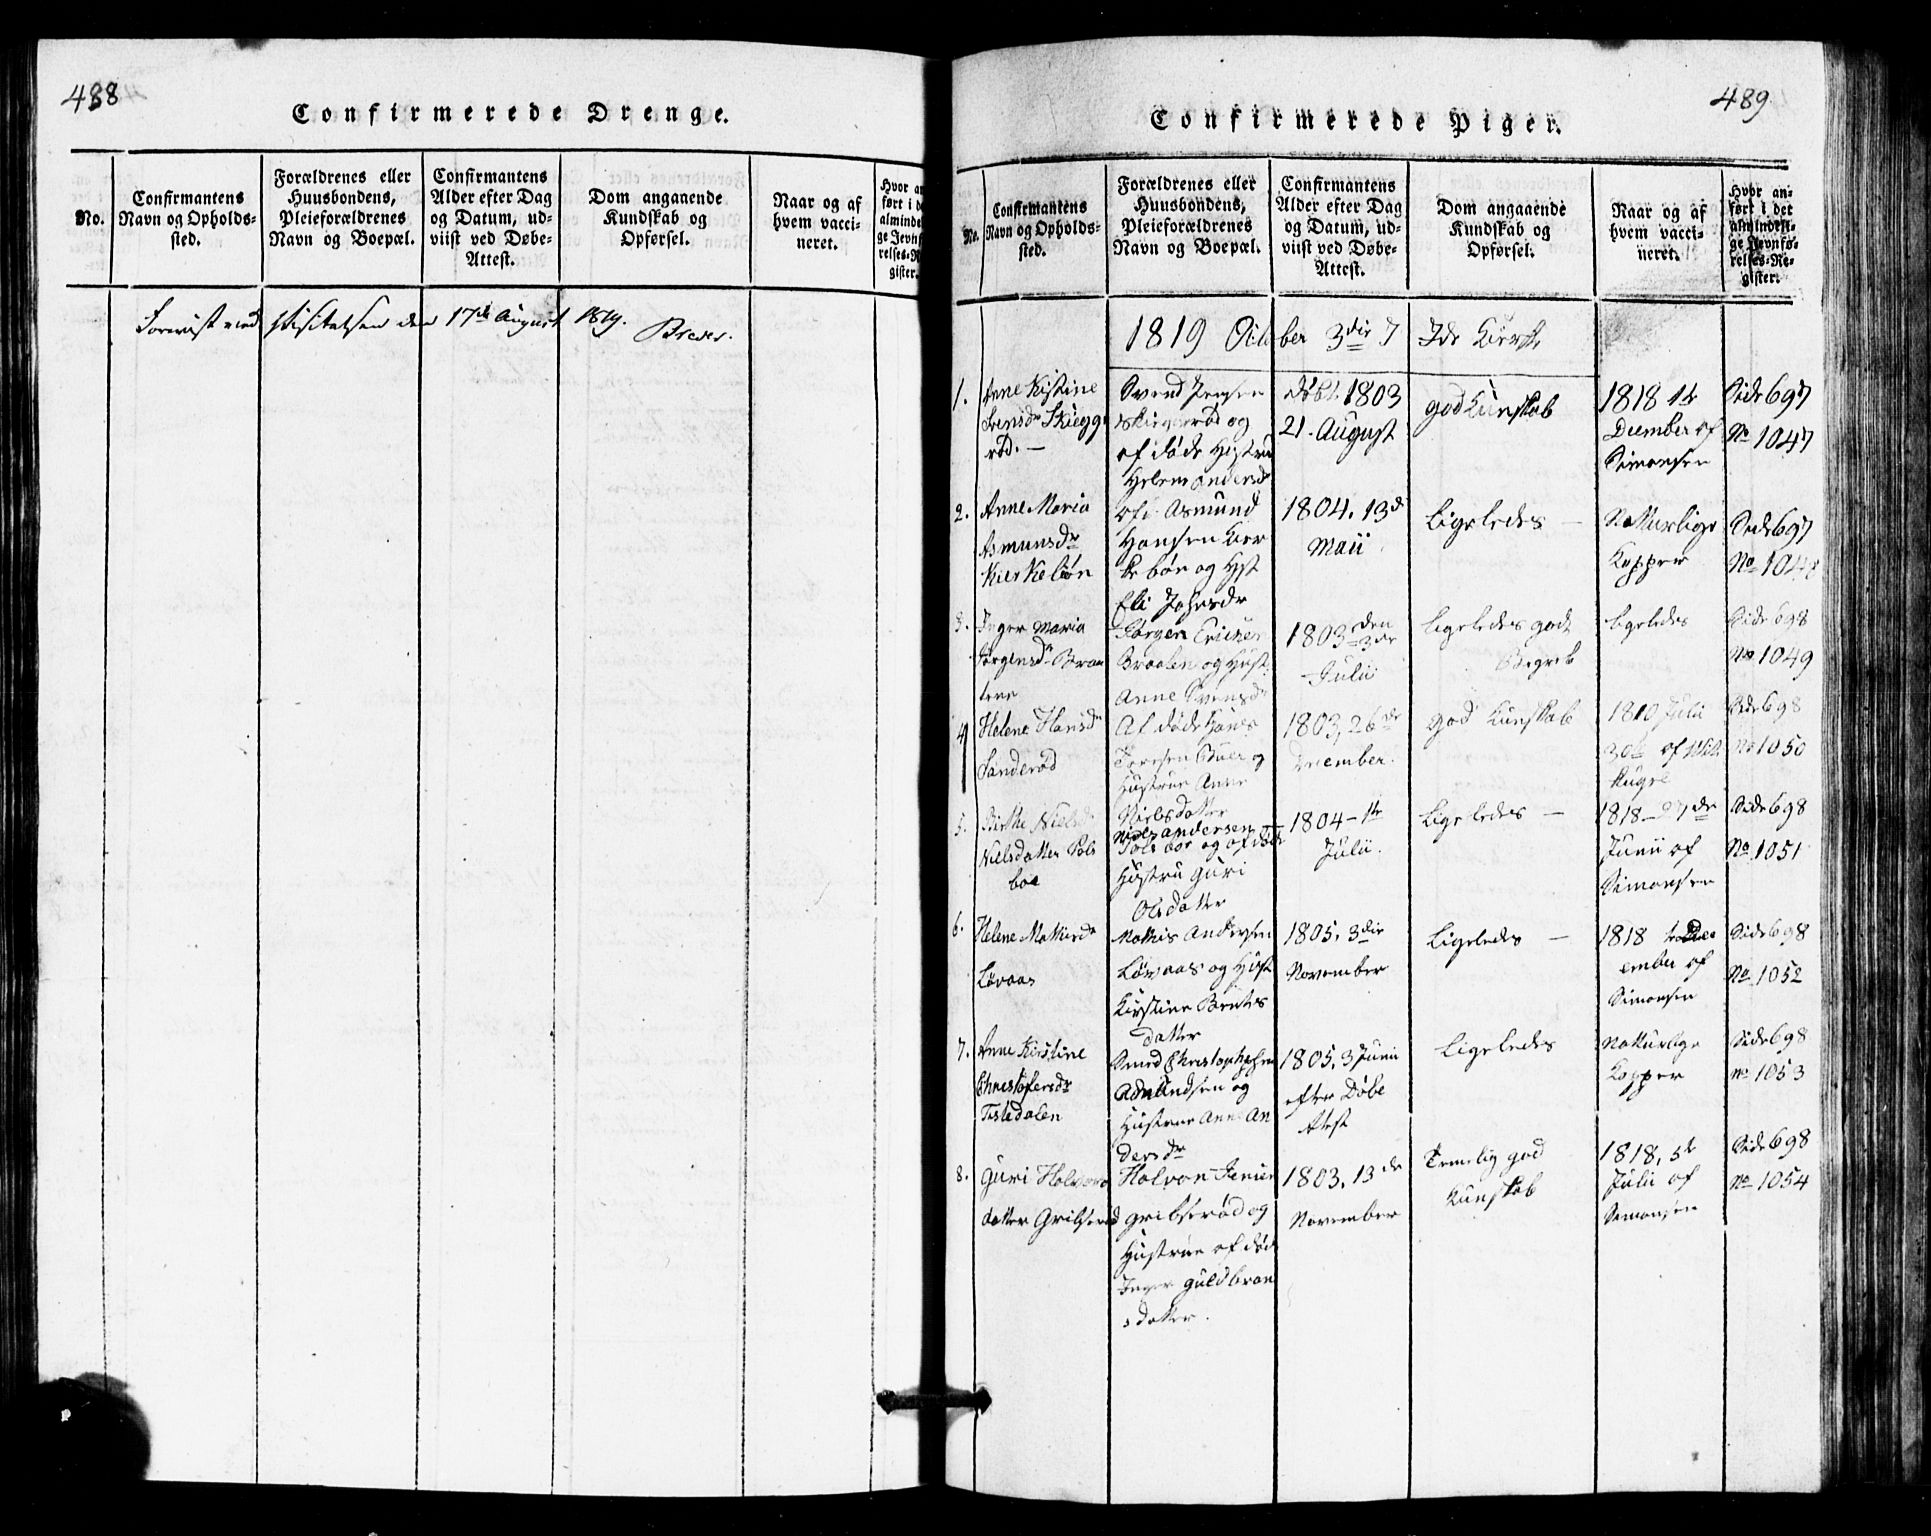 488
Confirmerede Drenge.
No.
Confirmantens
Navn og Opholds-
sted.
Forældrenes eller
Huusbondens,
Pleieforældrenes
Navn og Boepæl.
Confirmantens
Alder efter Dag
og Datum, ud-
viist ved Døbe-
Attest.
Dom angaaende
Kundskab og
Opførsel.
Naar og af
hvem vacci-
neret.
Hvor an
ført i de
almindel
ge Jevnf
relses-R
gister.
Foreviist ved Visitatsen den 17de August 1819.
489
Confirmerede Piger.
No.
Confirmantens
Navn og Opholds-
sted.
Forældrenes eller
Huusbondens,
Pleieforældrenes
Navn og Boepæl.
Confirmantens
Alder efter Dag
og Datum, ud-
viist ved Døbe-
Attest.
Dom angaaende
Kundskab og
Opførsel.
Naar og af
hvem vacci-
neret.
Hvor an-
ført i det
almindeli-
ge Jevnfø-
relses-Re-
gister.
1819 October 3die I Ide Kierke
1.
Anne Kistine
Svensdr Skiegge
rød. —
Svend Jensen
Skieggerød og
af døde Hustru
Helene Andersdr
Døbt 1803
21. August
god Kunskab
1818 14
December af
Simonsen
Side 697
No 1047
2.
Anne Maria
Asmunsdr
Kierkebøn
Asmund
Hansen Kier
kebøn og Hst
Eli Johnsdr
1804. 13d
Maii
Ligeledes —
Natturlige
Kopper
Side 697
No 1048
3.
Inger Maria
Jørgensdr Braa
tene
Jørgen Ericksen
Braaten og Hust
Anne Svensdr
1803 den 3die
Julii
ligeledes godt
Begreb
ligeledes
Side 698
No 1049
4
Helene Hansdr
Sanderød
Af døde Hans
Toresen Buer og
Hustrue Anne
Nielsdatter
1803, 26de
December.
god Kunskab
1810 Julii
30te af
Side 698
No 1050
5.
Birthe Niels
Nielsdatter Pols
boe
Niels Andersen
Pols boe og af døde
Hustru Guri
Olsdatter
1804 - 1te
Julii.
Ligeledes —
1818 - 27de
Junii af
Simonsen
Side 698
No 1051
6.
Helene Mathisdr
Løvaas
Mathis Andersen
Løvaas og Hust
Kirstine Berntes
datter
1805. 3die
November
Ligeledes —
1818 Dec
ember af
Simonsen
Side 698
No 1052
7.
Anne Kirstine
Christofersdr
Tistedalen
Smed Christophersen
Asmundsen og
Hustrue Anne An
dersdr
1805. 3 Junii
efter Døbe
Atest
Ligeledes
Natturlige
Kopper
Side 698
No 1053
8.
Guri Halvors
datter Gribserød
Halvor Jensen
Gribserød og
Hustrue af død
Inger Guldbran
sdatter.
1803. 13de
November
Temelig god
Kunskab
1818. 5te
Julii af
Simonsen
Side 698
No 1054